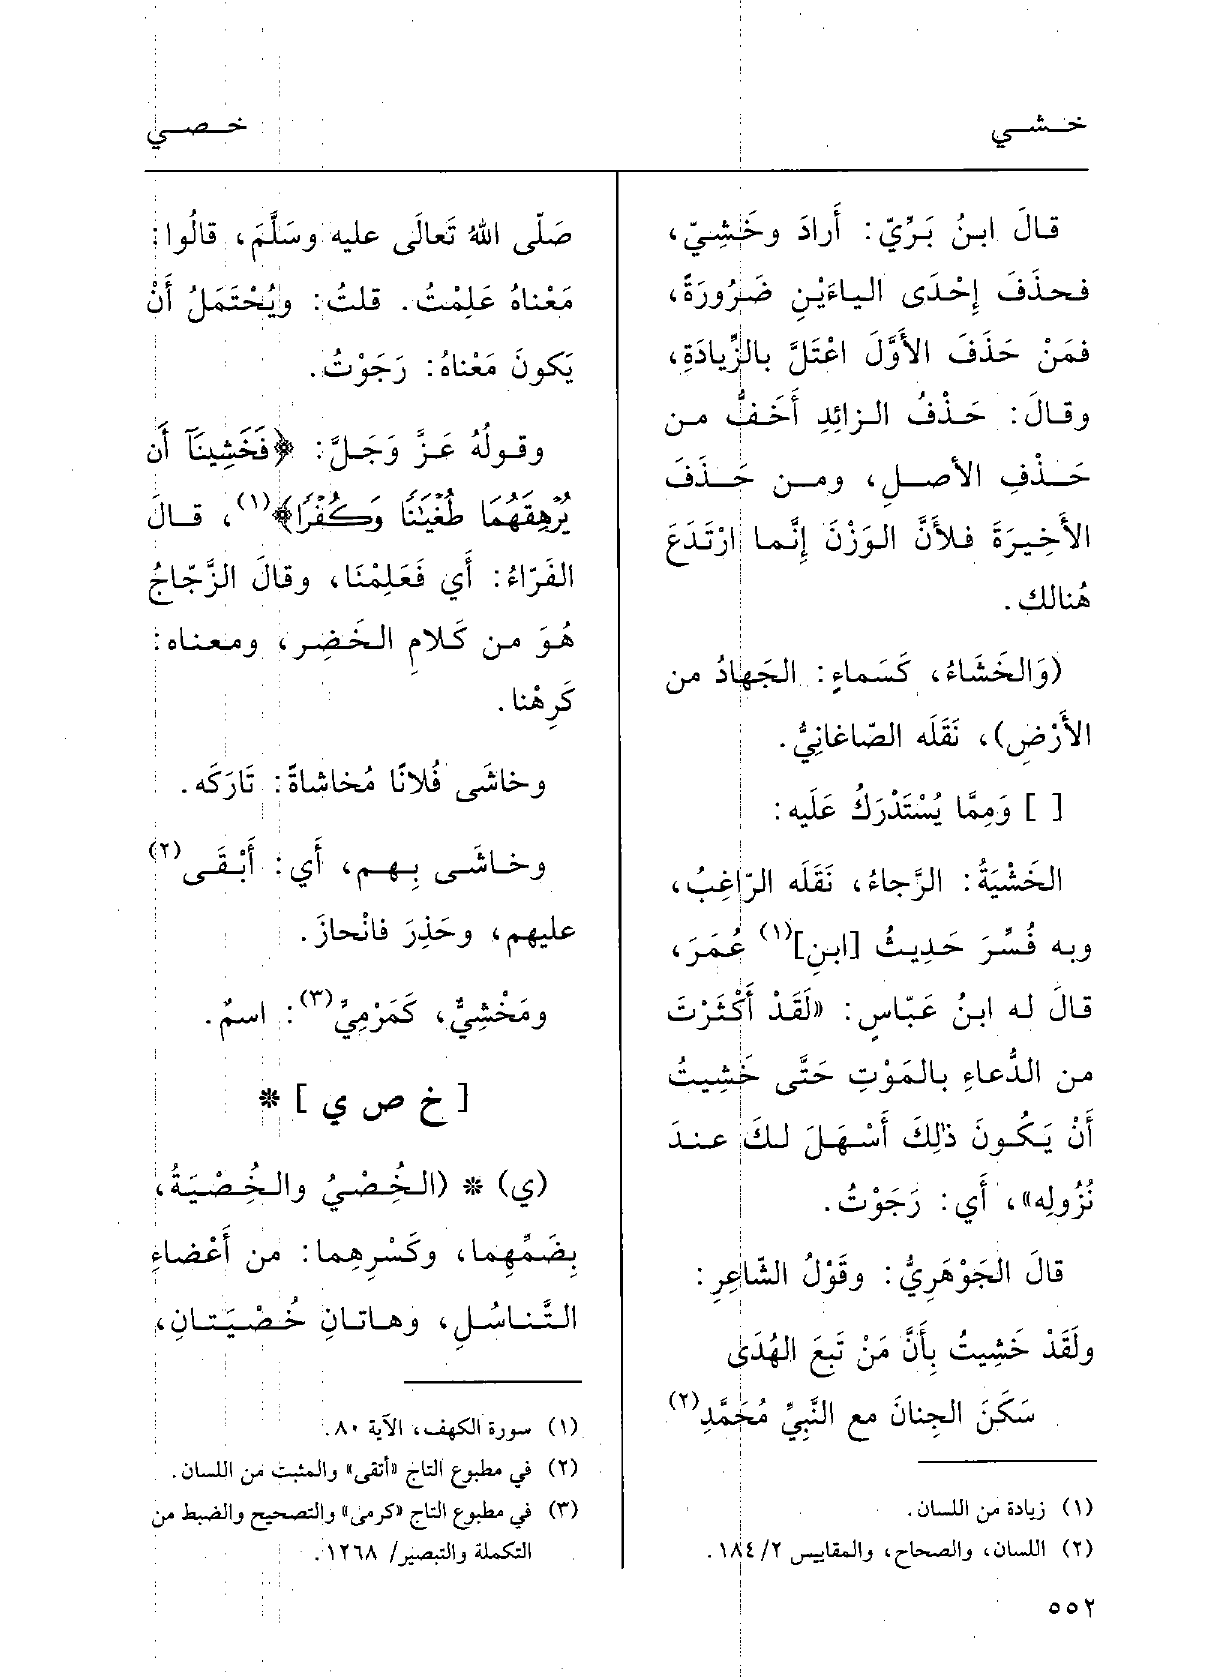 خشي
خصي
قالَ ابنُ بَرِّيّ: أَرادَ وخَشِيّ،
فحذَفَ إِحْدَى الياءَيْنِ ضَرُورَةً،
فمَنْ حَذَفَ الأَوَّلَ اعْتَلَّ بالزِّيادَةِ،
وقالَ: حَذْفُ الزائِدِ أَخَفُّ من
حَذْفِ الأصلِ، ومن حَذَفَ
الأَخِيرَةَ فلأَنَّ الوَزْنَ إِنَّما ارْتَدَعَ
هُنالك.
(وَالخَشَاءُ، كَسَماءٍ: الجَهادُ من
الأَرْضِ)، نَقَلَه الصّاغانِيُّ.
[ ] وَمِمَّا يُسْتَدْرَكُ عَلَيه:
الخَشْيَةُ: الرَّجاءُ، نَقَلَه الرّاغِبُ،
وبه فُسِّرَ حَدِيثُ [ابنِ](١) عُمَرَ،
قالَ له ابنُ عَبّاسٍ: «لَقَدْ أَكْثَرْتَ
من الدُّعاءِ بالمَوْتِ حَتَّى خَشِيتُ
أَنْ يَكُونَ ذلِكَ أَسْهَلَ لكَ عندَ
نُزُولِه»، أَي: رَجَوْتُ.
قالَ الجَوْهَرِيُّ: وقَوْلُ الشّاعِرِ:
ولَقَدْ خَشِيتُ بِأَنَّ مَنْ تَبِعَ الهُدَى
سَكَنَ الجِنانَ مع النَّبِيِّ مُحَمَّدِ(٢)
(١) زيادة من اللسان.
(٢) اللسان، والصحاح، والمقاييس ٢/ ١٨٤.
صَلّى اللهُ تَعالَى عليه وسَلَّمَ، قالُوا:
مَعْناهُ عَلِمْتُ. قلتُ: ويُحْتَمَلُ أَنْ
يَكونَ مَعْناهُ: رَجَوْتُ.
وقولُهُ عَزَّ وَجَلَّ: ﴿فَخَشِينَآ أَن
يُرْهِقَهُمَا طُغْيَٰنًا وَكُفْرًا﴾(١)، قالَ
الفَرّاءُ: أَي فَعَلِمْنَا، وقالَ الزَّجّاجُ
هُوَ من كَلامِ الخَضِر، ومعناه:
كَرِهْنا.
وخاشَى فُلانًا مُخاشاةً: تَارَكَه.
وخاشَى بِهم، أَي: أَبْقَى(٢)
عليهم، وحَذِرَ فانْحازَ.
ومَخْشِيٌّ، كَمَرْمِيٍّ(٣): اسمٌ.
[ خ ص ي ] *
(ي) * (الخُصْيُ والخُصْيَةُ،
بِضَمِّهِما، وكَسْرِهِما: من أَعْضاءِ
التَّناسُلِ، وهاتانِ خُصْيَتانِ،
(١) سورة الكهف، الآية ٨٠.
(٢) في مطبوع التاج «أتقى» والمثبت من اللسان.
(٣) في مطبوع التاج «كرمى» والتصحيح والضبط من
التكملة والتبصير/ ١٢٦٨.
٥٥٢